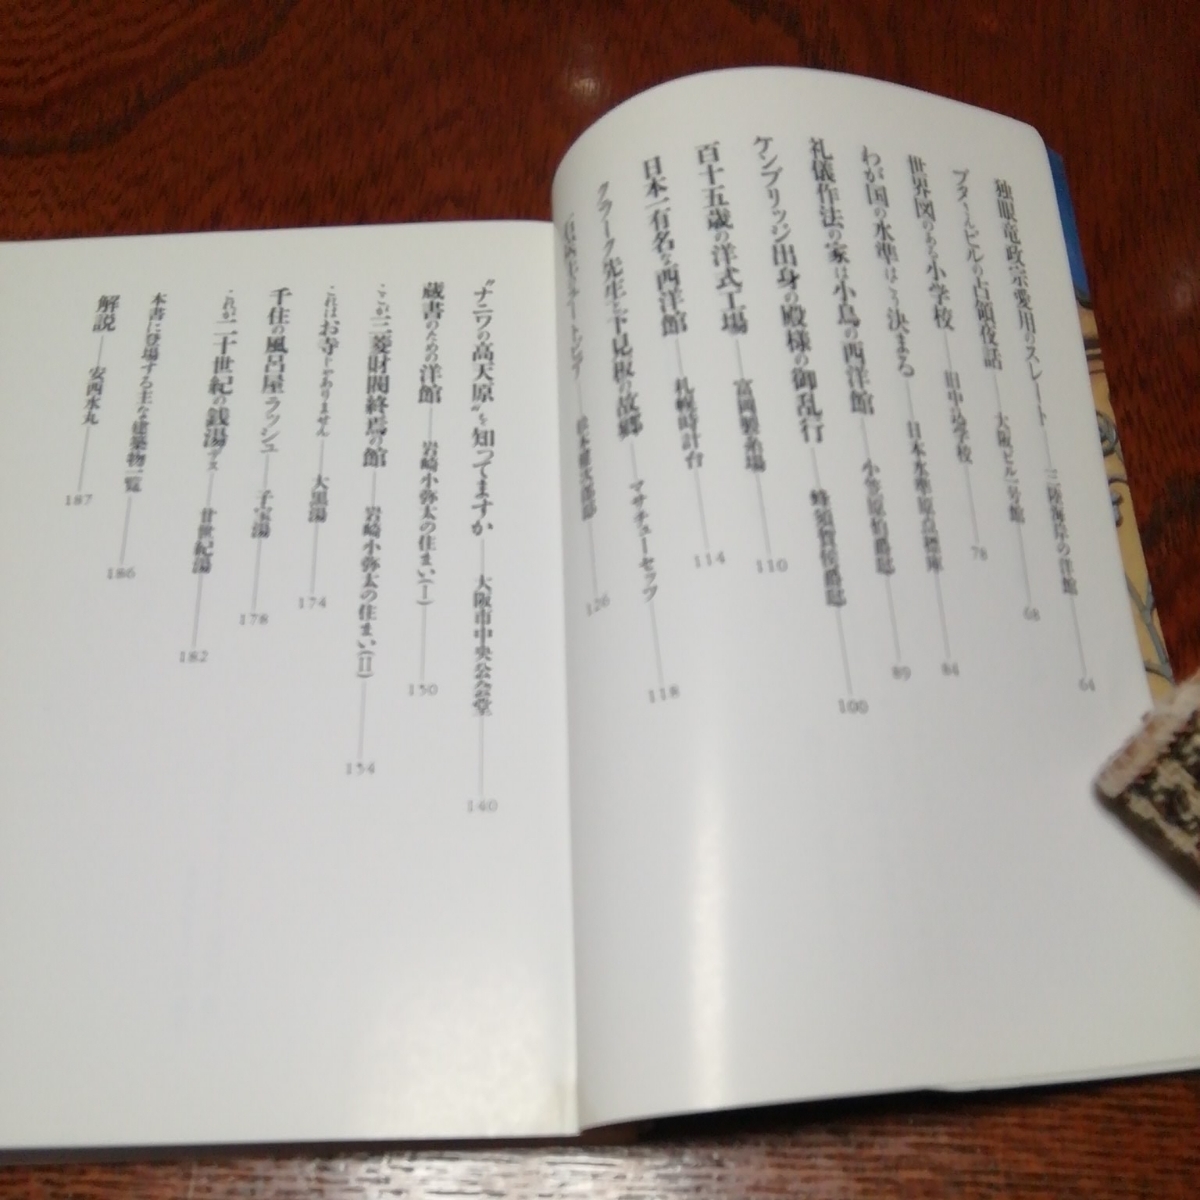 独眼竜政宗愛用のスレート――三陸海岸の洋館――64
ブタくんビルの占領夜話――大阪ビル一号館――68
世界図のある小学校――旧中込学校――78
わが国の水準はこう決まる――日本水準原点標庫――84
礼儀作法の家は小鳥の西洋館――小笠原伯爵邸――89
ケンブリッジ出身の殿様の御乱行――蜂須賀侯爵邸――100
百十五歳の洋式工場――富岡製糸場――110
日本一有名な西洋館――札幌時計台――114
クラーク先生と下見板の故郷――マサチューセッツ――118
松本健次郎邸――126
"ナニワの高天原"を知ってますか――大阪市中央公会堂――140
蔵書のための洋館――岩崎小弥太の住まい(I)――150
ここが三菱財閥終焉の館――岩崎小弥太の住まい(II)――154
これはお寺じゃありません――大黒湯――174
千住の風呂屋ラッシュ――子宝湯――178
これが二十世紀の銭湯デス――廿世紀湯――182
本書に登場する主な建築物一覧――186
解説――安西水丸――187